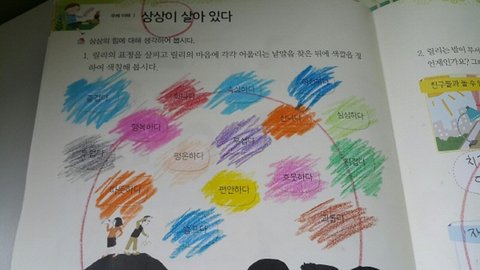 상상이 살아 있다
상상의 힘에 대해 생각하여 봅시다.
1. 릴리의 표정을 살피고 릴리의 마음에 각각 어울리는 낱말을 찾은 뒤에 색깔을 정
하여 색칠해 봅시다.
즐겁다
속상하다
심심하다
행복하다
신나다
무섭다
평온하다
따뜻하다
편안하다
흐뭇하다
슬프다
괴롭다
2. 릴리는 밤이 무서
언제인가요? 그
친구들과 놀 수 없